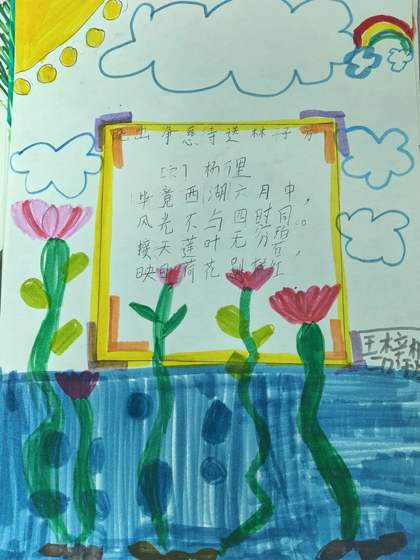 晓出净慈寺送林子方
[宋] 杨里
毕竟西湖六月中，
风光不与四时同。
接天莲叶无穷碧，
映日荷花别样红
王梓